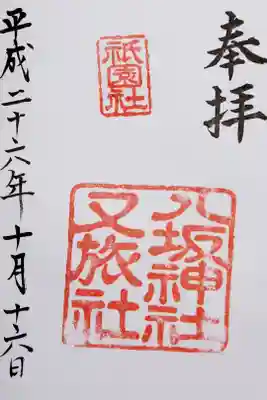 奉拝
祇園社
八坂神社
又旅社
平成二十六年十月十六日